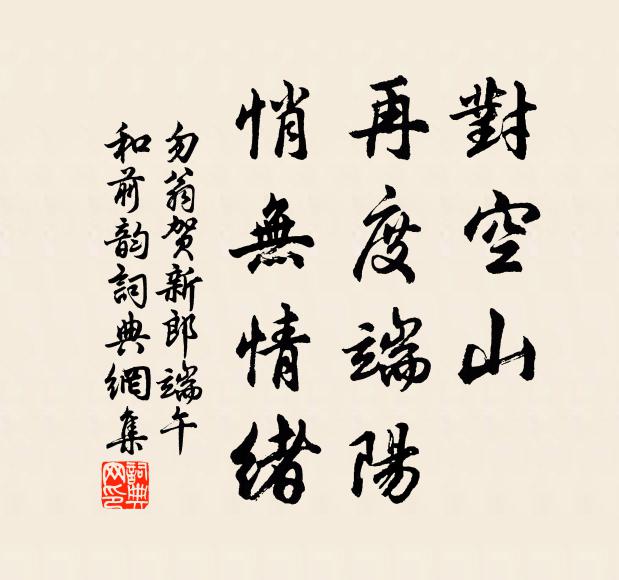 對空山
再度端陽
悄無情緒
勿翁賀新郎端午
和前韵詞典網集
詞典
网印